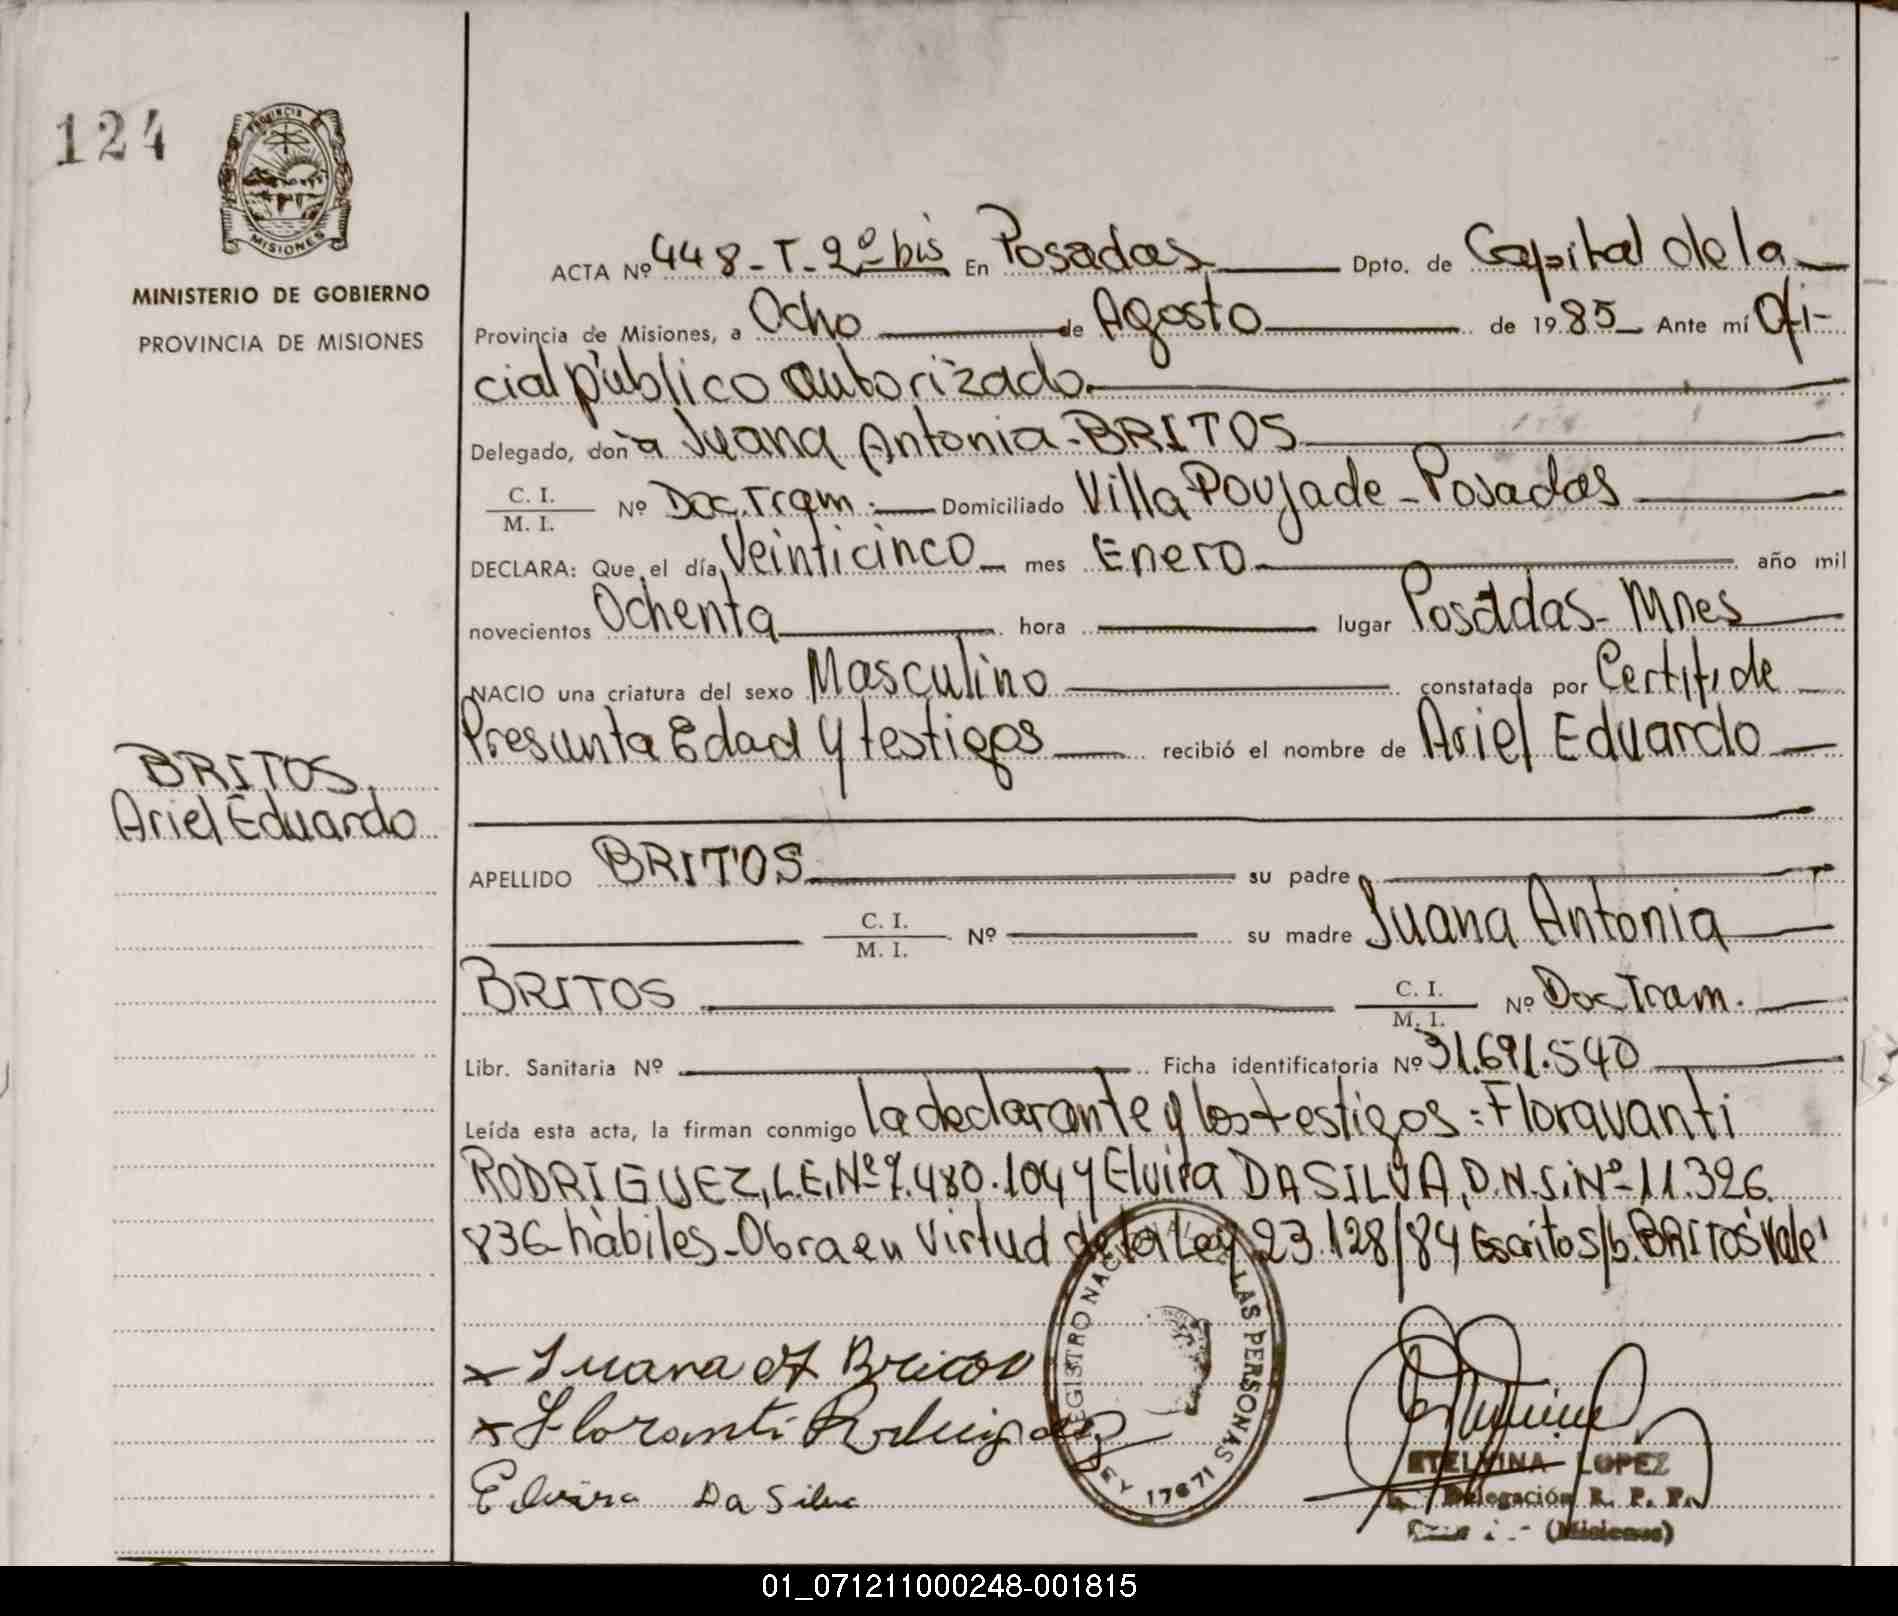 124
PROVINCIA D
MISIONES
MINISTERIO DE GOBIERNO
PROVINCIA DE MISIONES
BRITOS
Ariel Eduardo
ACTA Nº 448-T-2º bis En Posadas Dpto. de Capital de la
Provincia de Misiones, a Ocho de Agosto de 1985 Ante mí Ofi-
cial público autorizado.
Delegado, don a Juana Antonia-BRITOS
C. I.
M. I. Nº Doc. Tram. Domiciliado Villa Poujade - Posadas
DECLARA: Que el día Veinticinco mes Enero año mil
novecientos Ochenta hora lugar Posadas- Mnes
NACIO una criatura del sexo Masculino constatada por Certifi. de
Presunta Edad y testigos recibió el nombre de Ariel Eduardo
APELLIDO BRITOS su padre
C. I.
M. I. Nº su madre Juana Antonia
BRITOS C. I.
M. I. Nº Doc Tram.
Libr. Sanitaria Nº Ficha identificatoria Nº 31.691.540
Leída esta acta, la firman conmigo la declarante y los testigos: Floravanti
RODRIGUEZ, L.E. Nº 7.480.104 y Elvira DA SILVA, D.N.I. Nº 11.326.
836 hábiles-Obra en Virtud de la Ley 23.128/84 Escrito s/b. BRITOS Vale
REGISTRO NACIONAL DE LAS PERSONAS
LEY 17671
Juana A Britos
Floravanti Rodriguez
Elvira Da Silva
ETELVINA LOPEZ
Delegación R. P. P.
(Misiones)
01_071211000248-001815